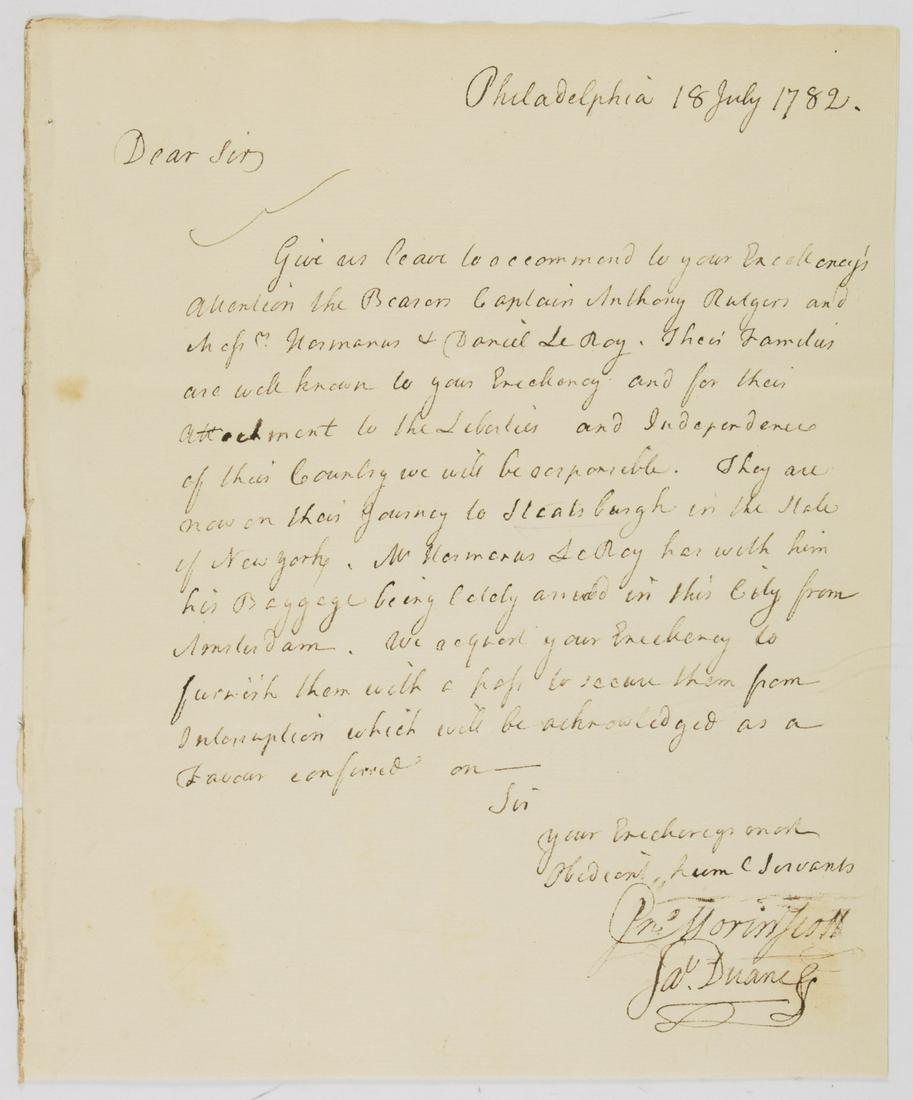 Philadelphia 18 July 1782.
Dear Sir
Give us leave to recommend to your Excellency's
Attention the Bearers Captain Anthony Rutgers and
Messrs. Hermanus & Daniel Le Roy. Their Families
are well known to your Excellency and for their
Attachment to the Liberties and Independence
of their Country we will be responsible. They are
now on their Journey to Staatsburgh in the State
of New York. Mr Hermanus LeRoy has with him
his Baggage being lately arrived in this City from
Amsterdam. We request your Excellency to
furnish them with a pass to secure them from
Interruption which will be acknowledged as a
Favour conferred on
Sir
your Excellencys most
Obedient humle Servants
Jno. Morin Scott
Jas. Duane